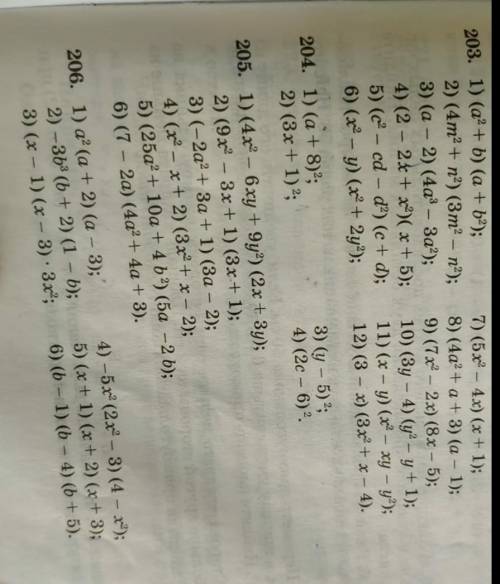 203. 1) (a² + b) (a + b²);
2) (4m² + n²) (3m² − n²);
3) (a − 2) (4a³ − 3a²);
4) (2 − 2x + x²)( x + 5);
5) (c² − cd − d²) (c + d);
6) (x² − y) (x² + 2y²);
7) (5x² − 4x) (x + 1);
8) (4a² + a + 3) (a − 1);
9) (7x² − 2x) (8x − 5);
10) (3y − 4) (y² − y + 1);
11) (x − y) (x² − xy − y²);
12) (3 − x) (3x² + x − 4).
204. 1) (a + 8)²;
2) (3x + 1)²;
3) (y − 5)²;
4) (2c − 6)².
205. 1) (4x² − 6xy + 9y²) (2x + 3y);
2) (9x² − 3x + 1) (3x + 1);
3) (−2a² + 3a + 1) (3a − 2);
4) (x² − x + 2) (3x² + x − 2);
5) (25a² + 10a + 4 b²) (5a −2 b);
6) (7 − 2a) (4a² + 4a + 3).
206. 1) a² (a + 2) (a − 3);
2) −3b³ (b + 2) (1 − b);
3) (x − 1) (x − 3) · 3x²;
4) −5x² (2x² − 3) (4 − x²);
5) (x + 1) (x + 2) (x + 3);
6) (b − 1) (b − 4) (b + 5).